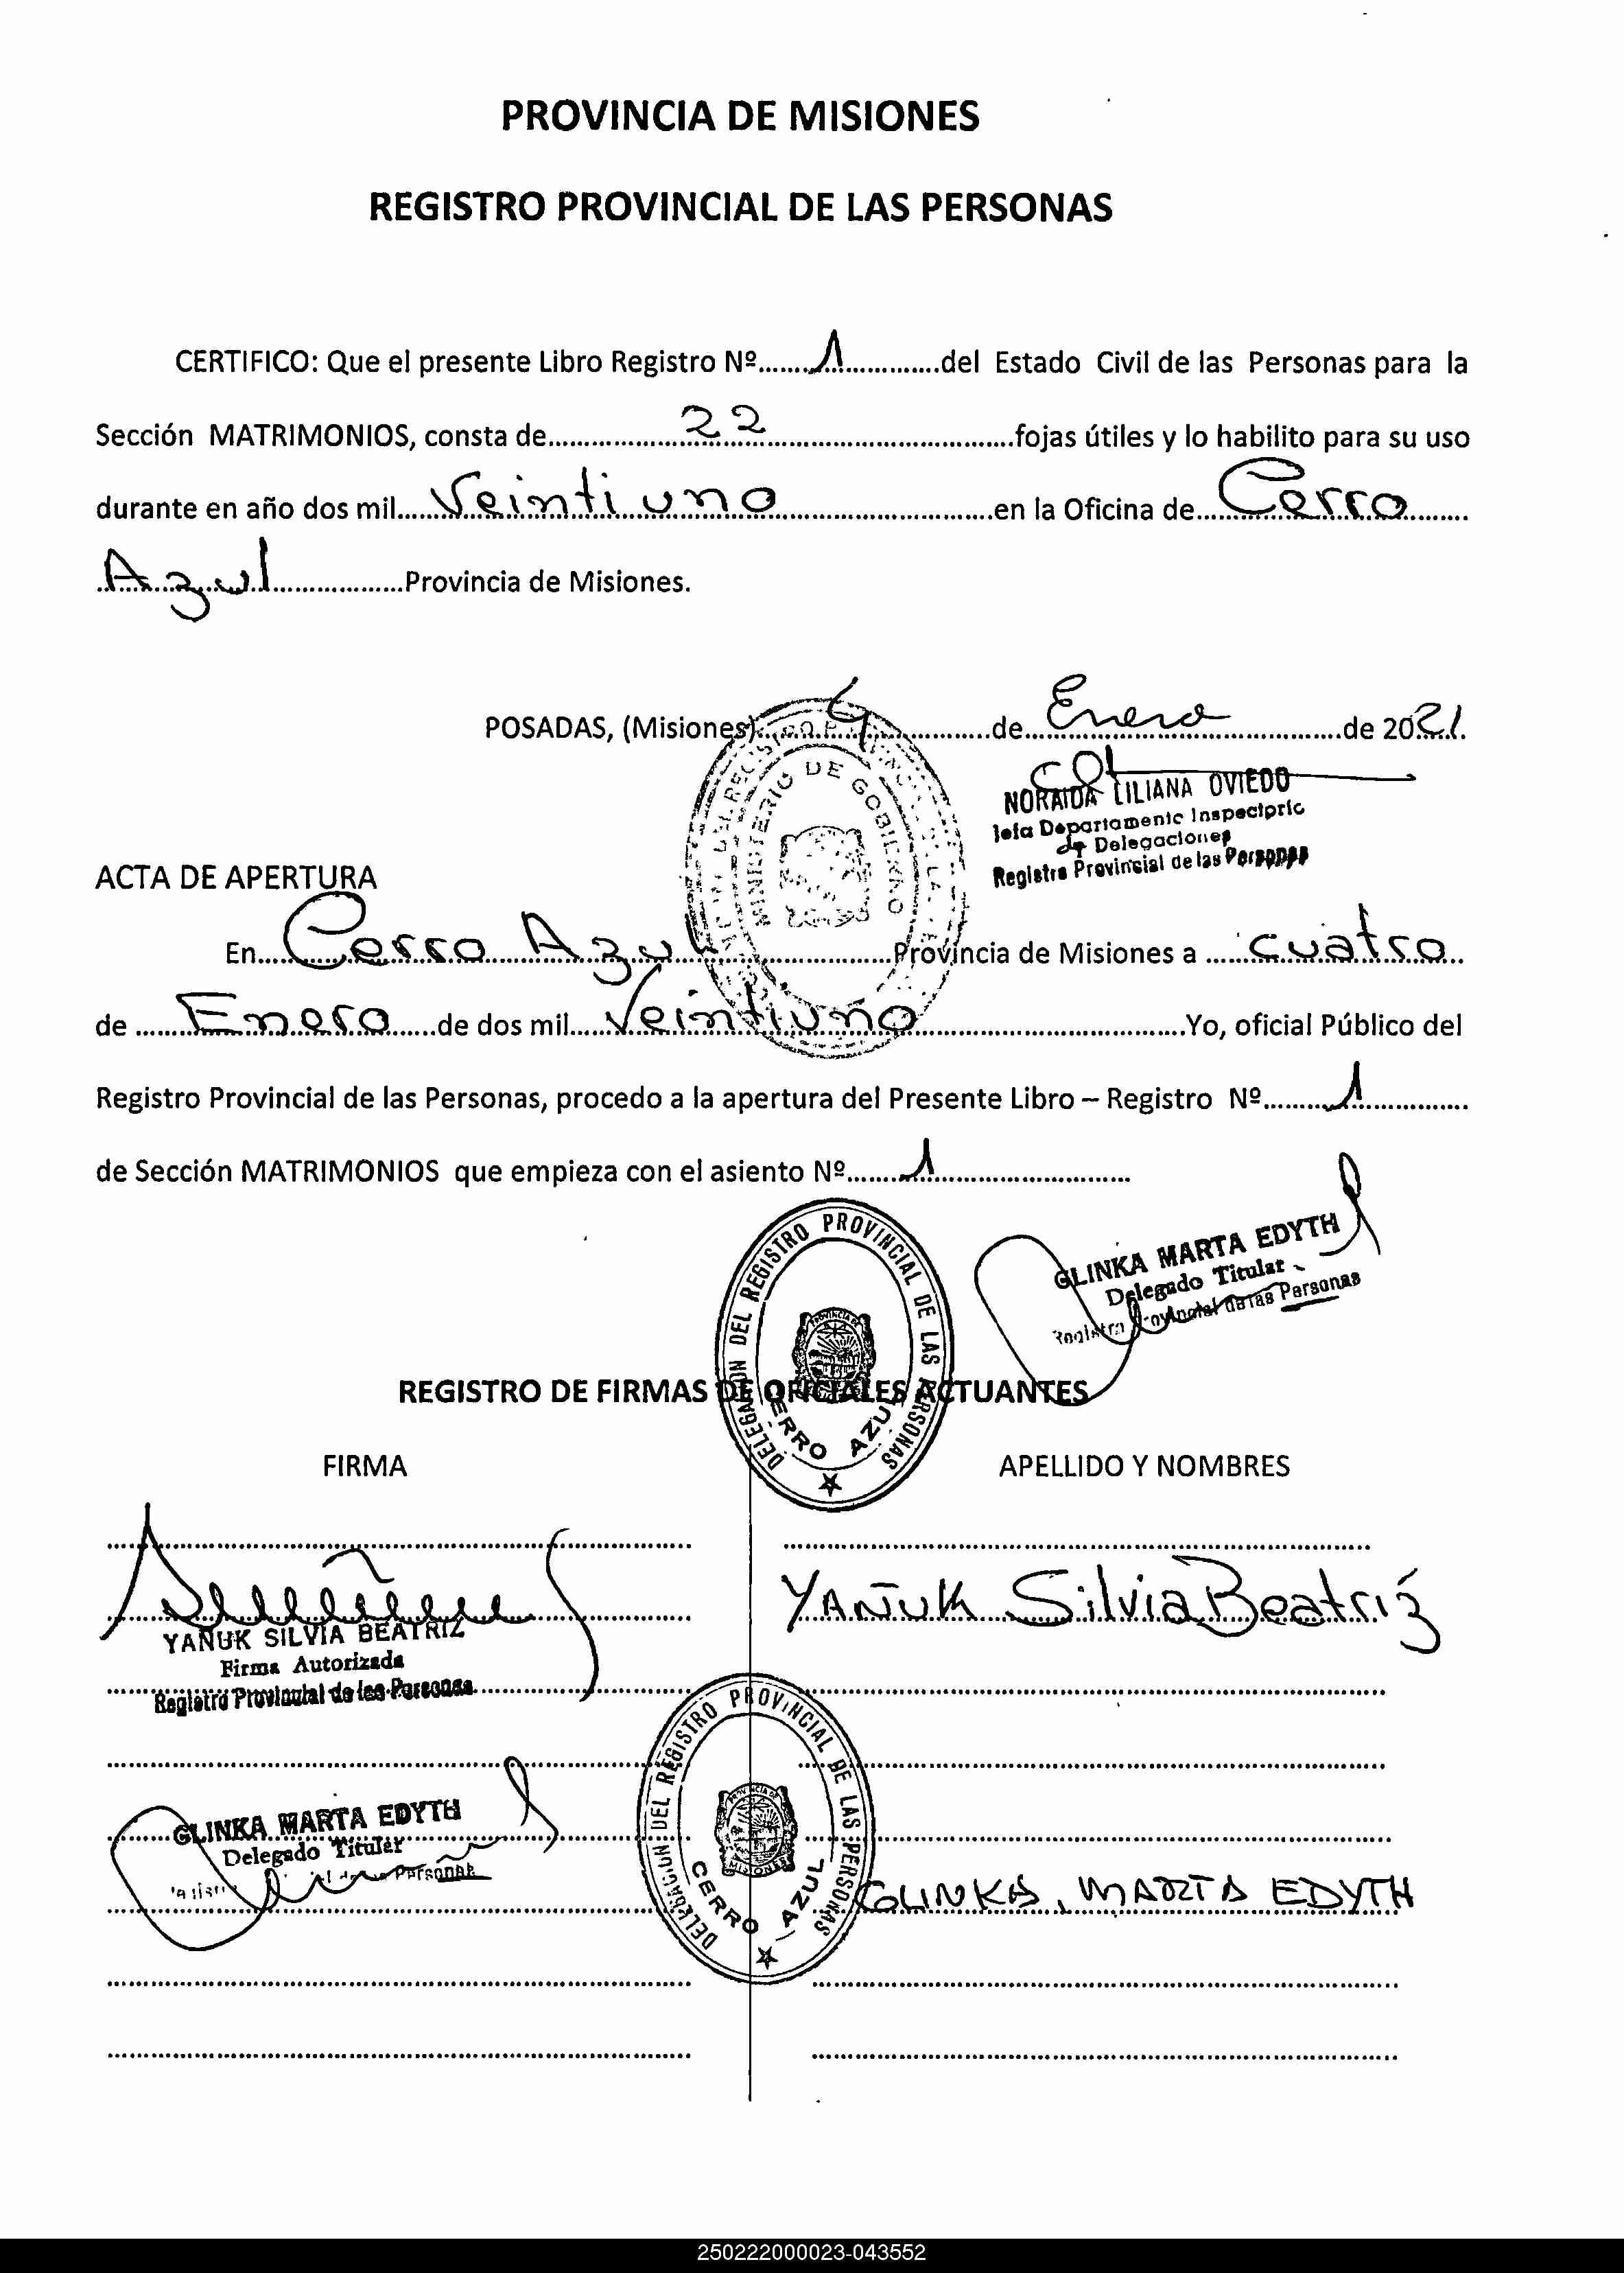 PROVINCIA DE MISIONES
REGISTRO PROVINCIAL DE LAS PERSONAS
CERTIFICO: Que el presente Libro Registro Nº.......1.............del Estado Civil de las Personas para la
Sección MATRIMONIOS, consta de..............22..............fojas útiles y lo habilito para su uso
durante en año dos mil......Veintiuno......................en la Oficina de....Cerro......
Azul..................Provincia de Misiones.
POSADAS, (Misiones)......4............de....Enero..............de 2021.
MINISTERIO DE GOBIERNO
NORAIDA LILIANA OVIEDO
Jefa Departamento Inspectoria
de Delegaciones
Registro Provincial de las Personas
ACTA DE APERTURA
En....Cerro Azul......................Provincia de Misiones a ......cuatro..
de ......Enero......de dos mil.....Veintiuno..........................Yo, oficial Público del
Registro Provincial de las Personas, procedo a la apertura del Presente Libro – Registro Nº.........1...............
de Sección MATRIMONIOS que empieza con el asiento Nº.......1...........................
DELEGACION DEL REGISTRO PROVINCIAL DE LAS PERSONAS
CERRO AZUL
GLINKA MARTA EDYTH
Delegado Titular
Registro Provincial de las Personas
REGISTRO DE FIRMAS DE OFICIALES ACTUANTES
FIRMA APELLIDO Y NOMBRES
YAÑUK Silvia Beatriz
YAÑUK SILVIA BEATRIZ
Firma Autorizada
Registro Provincial de las Personas
DELEGACION DEL REGISTRO PROVINCIAL DE LAS PERSONAS
PROVINCIA DE MISIONES
CERRO AZUL
GLINKA MARTA EDYTH
Delegado Titular
Personas
GLINKA, MARTA EDYTH
250222000023-043552